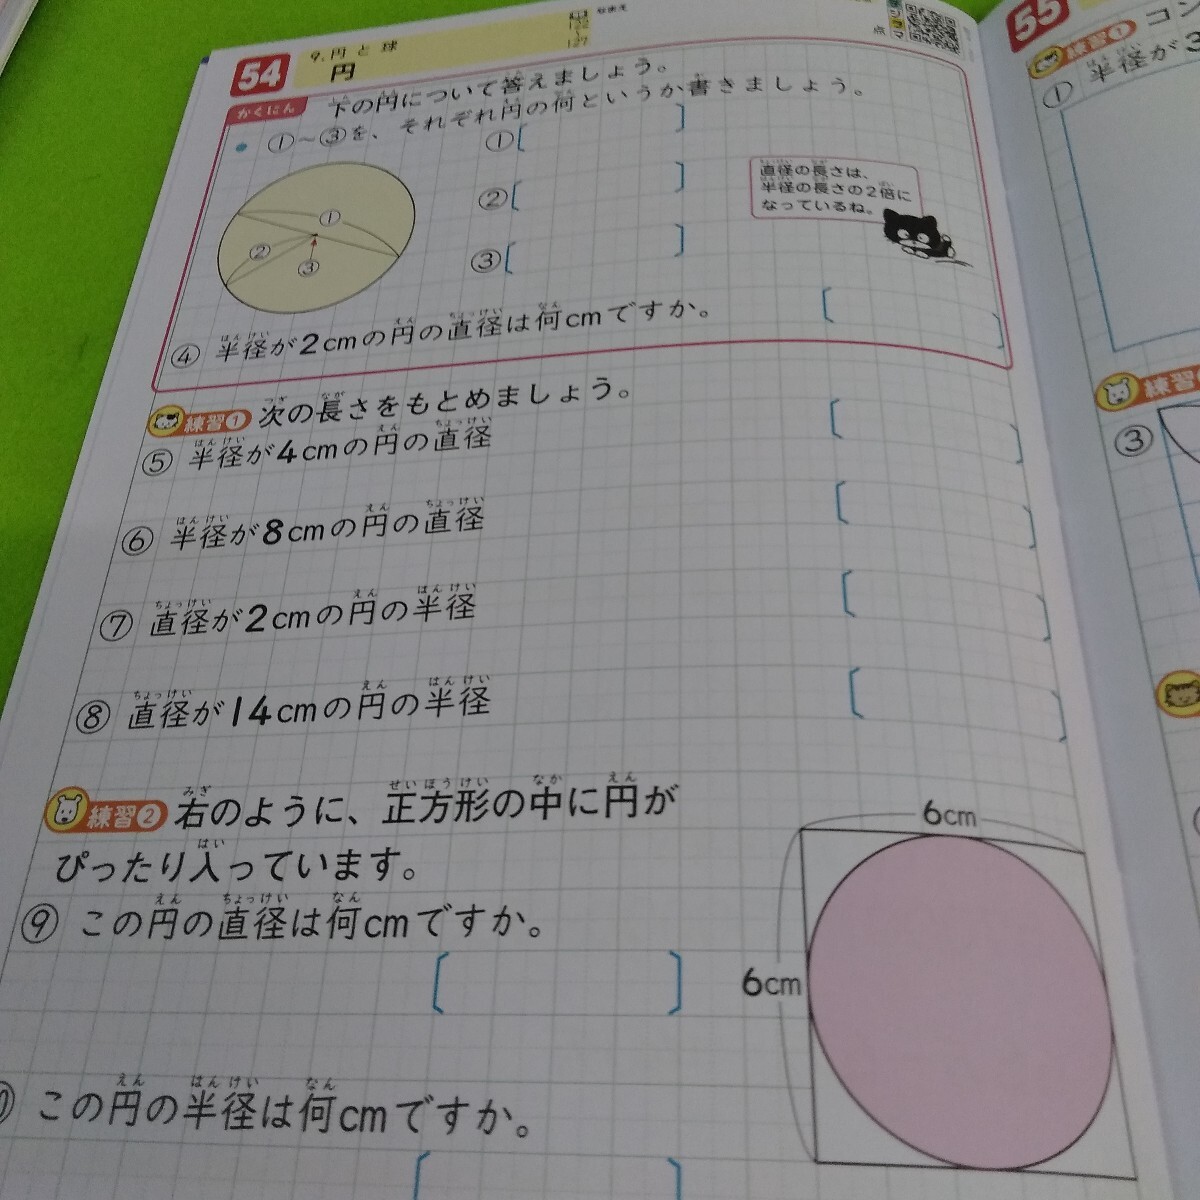 54
9. 円と球
円
なまえ
点
かくにん
下の円について答えましょう。
①～③を、それぞれ円の何というか書きましょう。
①
②
③
①
②
③
直径の長さは、
半径の長さの2倍に
なっているね。
④ 半径が2cmの円の直径は何cmですか。
練習① 次の長さをもとめましょう。
⑤ 半径が4cmの円の直径
⑥ 半径が8cmの円の直径
⑦ 直径が2cmの円の半径
⑧ 直径が14cmの円の半径
練習② 右のように、正方形の中に円が
ぴったり入っています。
⑨ この円の直径は何cmですか。
この円の半径は何cmですか。
6cm
6cm
55
練習① コン
① 半径が3
練習
③